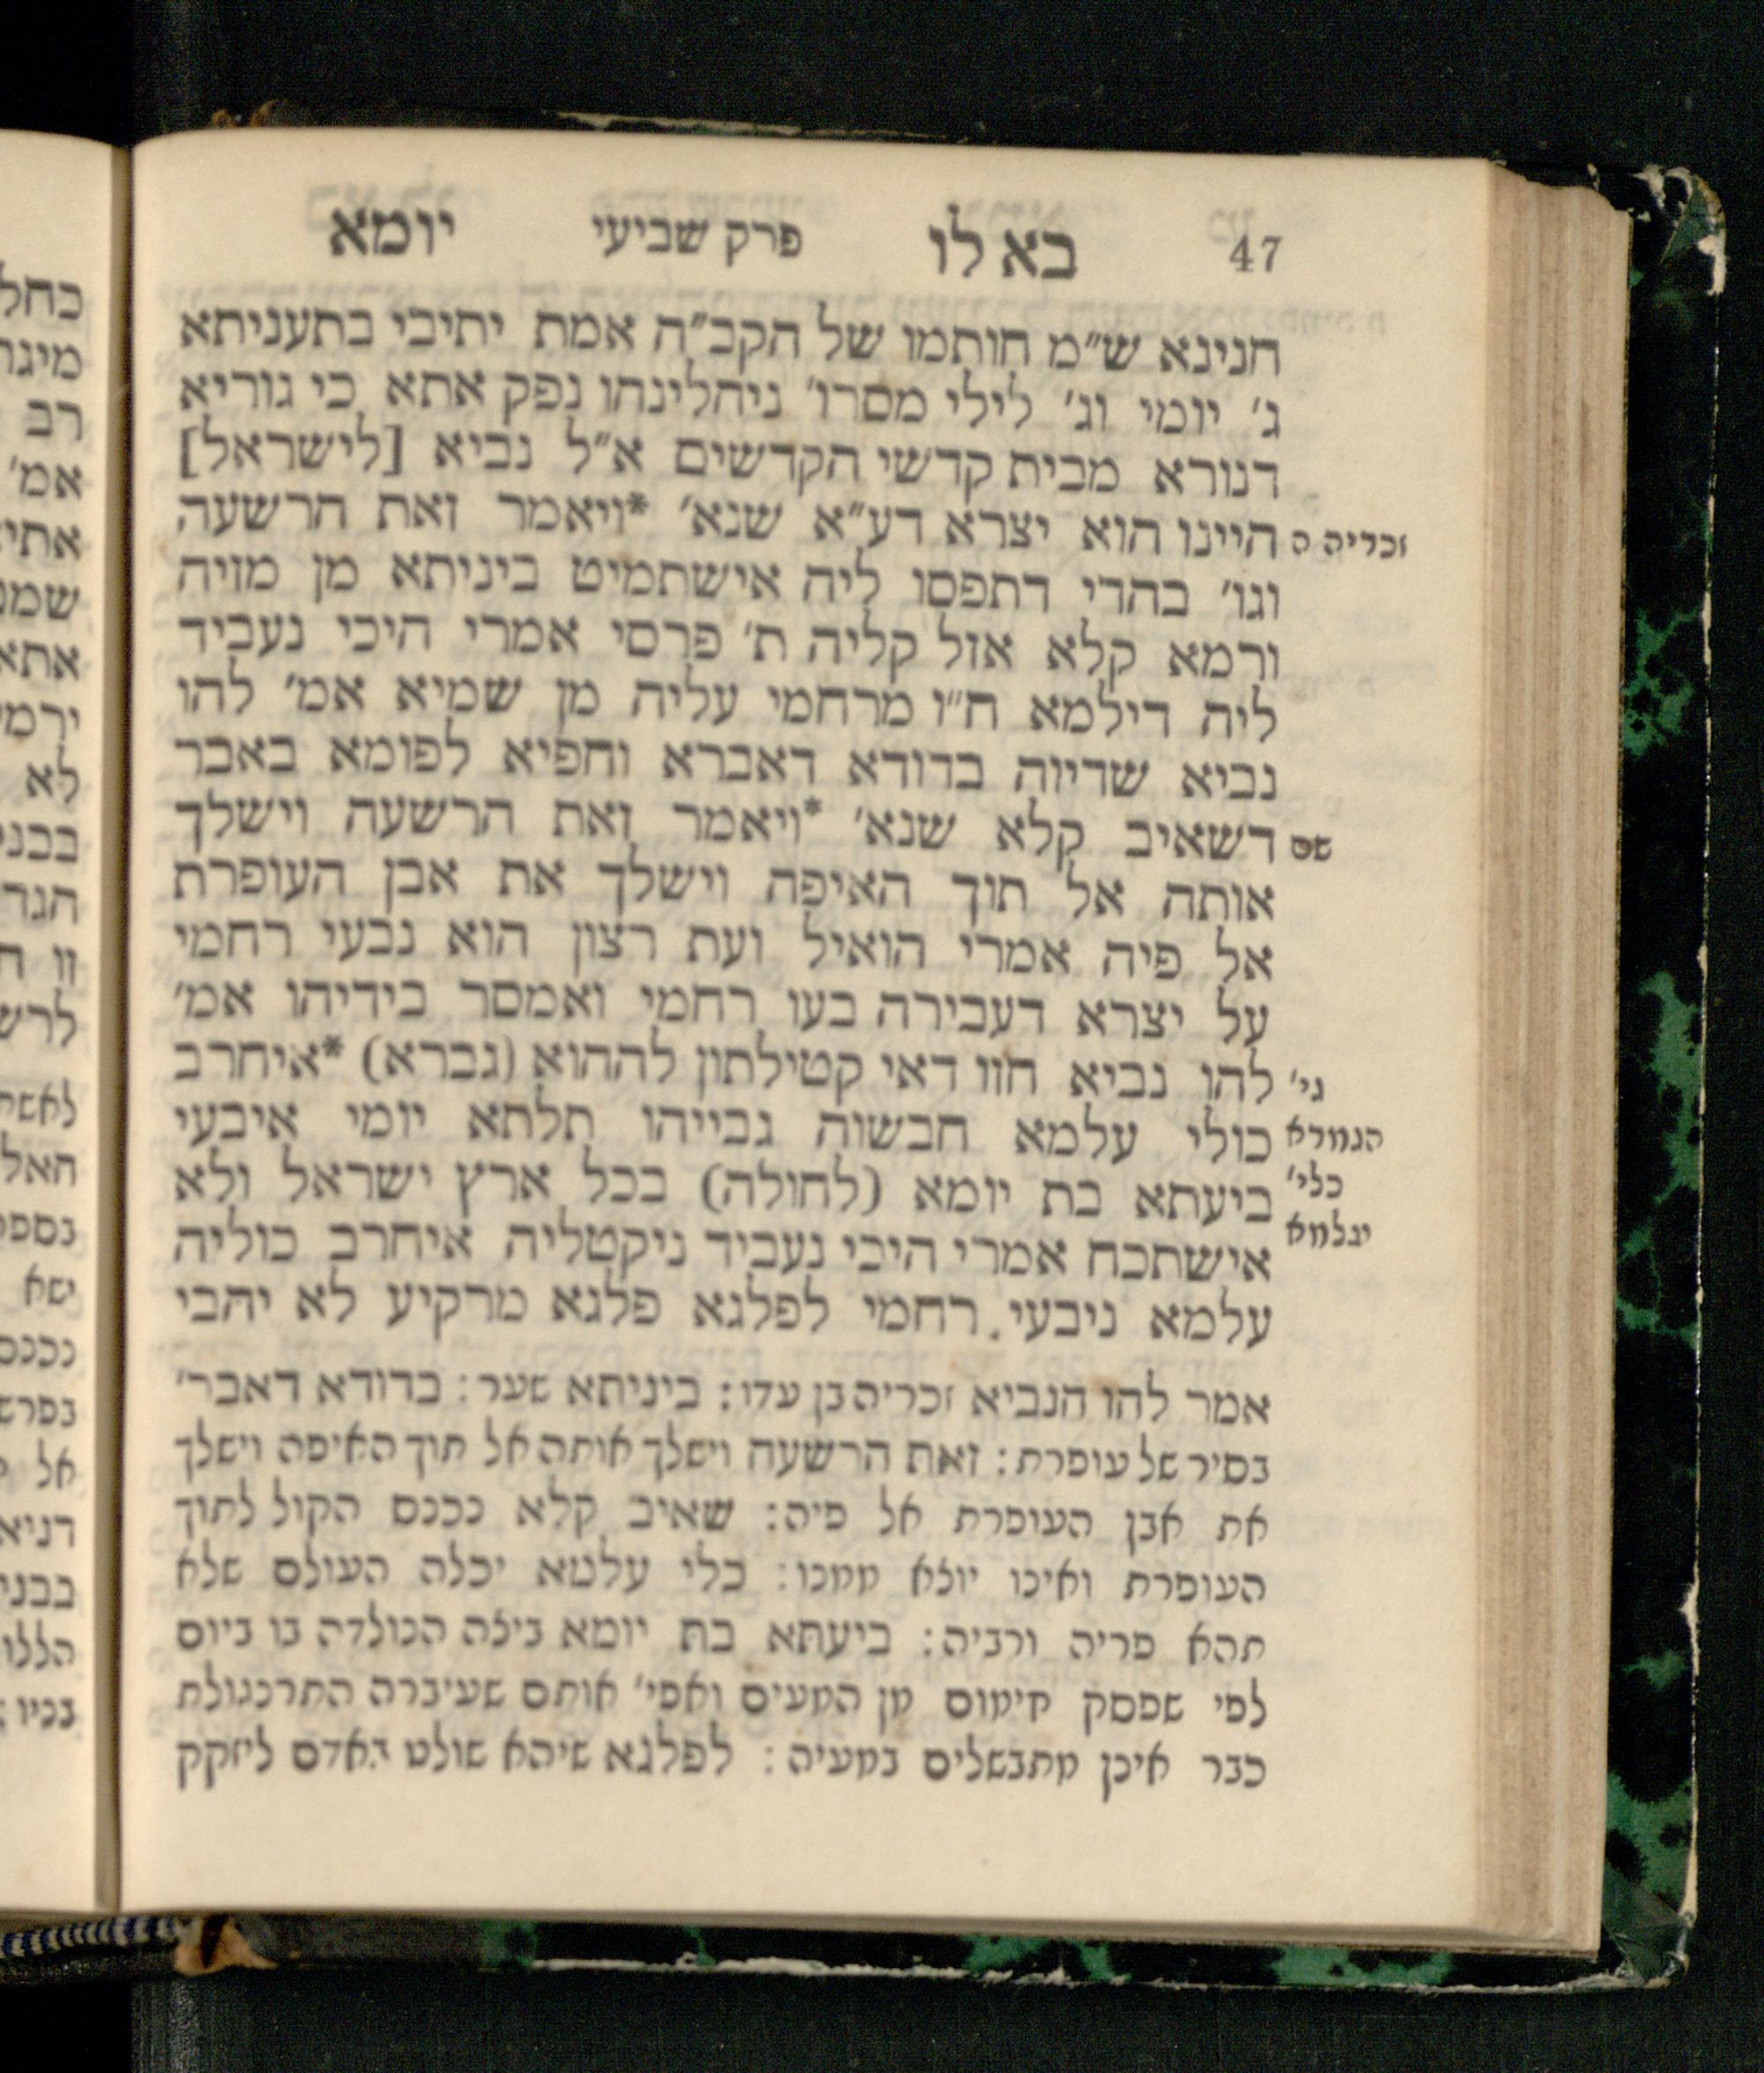 47 בא לו פרק שביעי יומא
חנינא ש״מ חותמו של הקב״ה אמת יתיבי בתעניתא
ג׳ יומי וג׳ לילי מסרו׳ ניהלינהו נפק אתא כי גוריא
דנורא מבית קדשי הקדשים א״ל נביא [לישראל]
היינו הוא יצרא דע״א שנא׳ *ויאמר זאת הרשעה
זכריה ה
וגו׳ בהדי דתפסו ליה אישתמיט ביניתא מן מזיה
ורמא קלא אזל קליה ת׳ פרסי אמרי היכי נעביד
ליה דילמא ח״ו מרחמי עליה מן שמיא אמ׳ להו
נביא שדיוה בדודא דאברא וחפיא לפומא באבר
דשאיב קלא שנא׳ *ויאמר זאת הרשעה וישלך
שם
אותה אל תוך האיפה וישלך את אבן העופרת
אל פיה אמרי הואיל ועת רצון הוא נבעי רחמי
על יצרא דעבירה בעו רחמי ואמסר בידיהו אמ׳
להו נביא חזו דאי קטילתון לההוא (גברא) *איחרב
גי׳
כולי עלמא חבשוה גבייהו תלתא יומי איבעי
הגמרא
ביעתא בת יומא (לחולה) בכל ארץ ישראל ולא
כלי׳
אישתכח אמרי היכי נעביד ניקטליה איחרב כוליה
עלמא
עלמא ניבעי רחמי לפלגא פלגא מרקיע לא יהבי
אמר להו הנביא זכריה בן עדו: ביניתא שער: בדודא דאבר׳
בסיר של עופרת: זאת הרשעה וישלך אותה אל תוך האיפה וישלך
את אבן העופרת אל פיה: שאיב קלא נכנס הקול לתוך
העופרת ואינו יוצא ממנו: כלי עלמא יכלה העולם שלא
תהא פריה ורביה: ביעתא בת יומא ביצה הנולדה בו ביום
לפי שפסק חימום מן המעים ואפי׳ אותם שעיברה התרנגולת
כבר אינן מתבשלים במעיה: לפלגא שיהא שולט באדם ליזקק